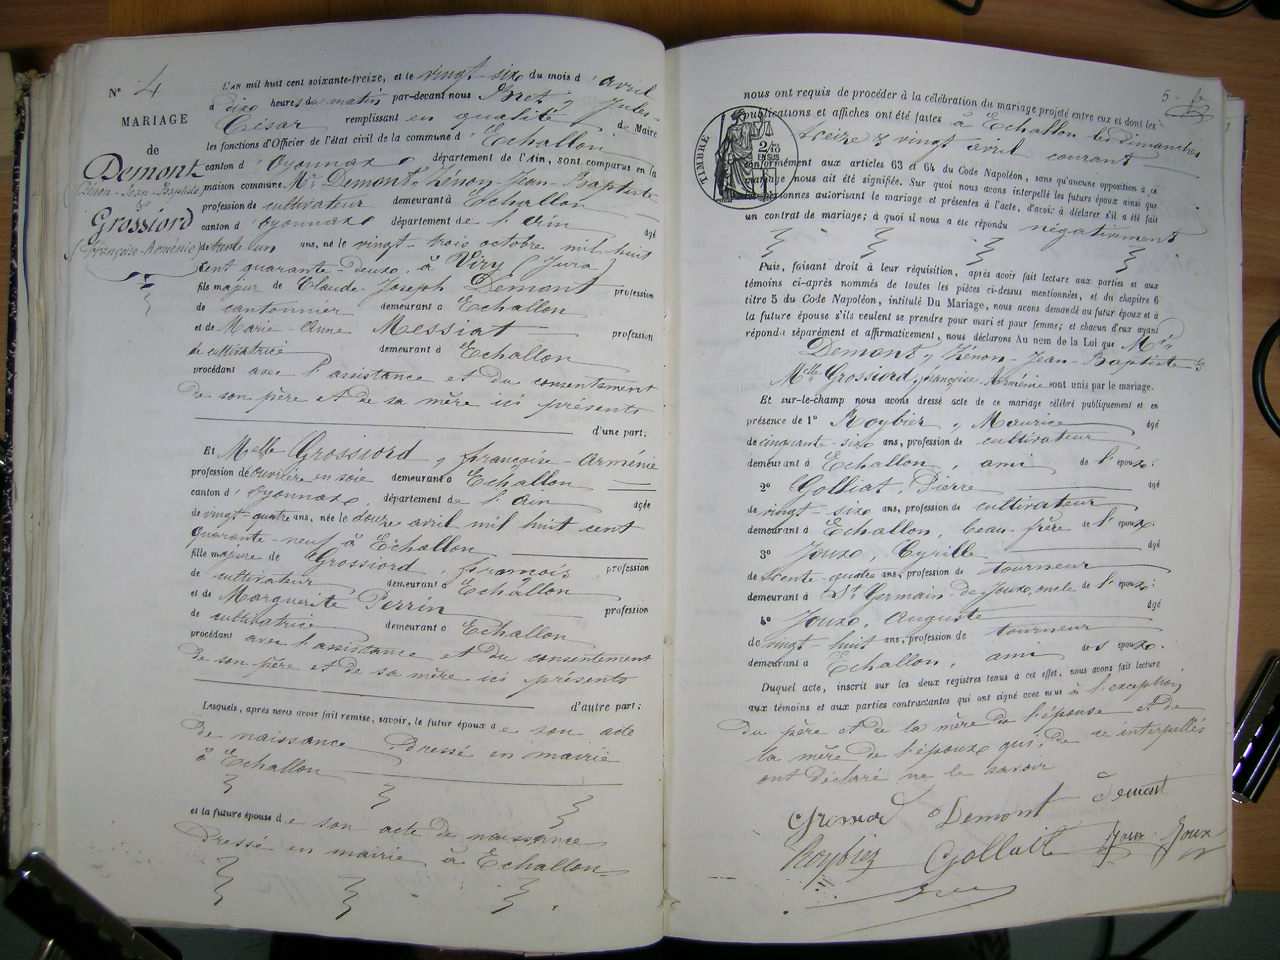 N° 4
MARIAGE
de
Demont
Zénon-Jean-Baptiste
&
Grossiord
Françoise-Arménie
L'AN mil huit cent soixante-treize, et le vingt-six du mois d'avril
à dix heures du matin par-devant nous Bret, Jules-
César remplissant en qualité de Maire
les fonctions d'Officier de l'état civil de la commune d'Echallon
canton d'Oyonnax département de l'Ain, sont comparus en la
maison commune, Mr Demont, Zénon-Jean-Baptiste
profession de cultivateur demeurant à Echallon
canton d'oyonnax département de l'ain âgé
de trente un ans, né le vingt-trois octobre mil huit
cent quarante-deux, à Viry (Jura)
fils majeur de Claude-Joseph Demont profession
de cantonnier demeurant à Echallon
et de Marie-Anne Messiat profession
de cultivatrice demeurant à Echallon
procédant avec l'assistance et du consentement
de son père et de sa mère ici présents
d'une part;
Et Melle Grossiord, françoise-Arménie
profession de ouvrière en soie demeurant à Echallon
canton d'oyonnax, département de l'ain âgée
de vingt-quatre ans, née le douze avril mil huit cent
quarante-neuf à Echallon
fille majeure de Grossiord, françois profession
de cultivateur demeurant à Echallon
et de Marguerite Perrin profession
de cultivatrice demeurant à Echallon
procédant avec l'assistance et du consentement
de son père et de sa mère ici présents
d'autre part;
Lesquels, après nous avoir fait remise, savoir, le futur époux de son acte
de naissance dressé en mairie
à Echallon
et la future épouse de son acte de naissance
dressé en mairie à Echallon
5
TIMBRE
nous ont requis de procéder à la célébration du mariage projeté entre eux et dont les
publications et affiches ont été faites à Echallon les dimanches
treize & vingt avril courant
conformément aux articles 63 et 64 du Code Napoléon, sans qu'aucune opposition à ce
mariage nous ait été signifiée. Sur quoi nous avons interpellé les futurs époux ainsi que
les personnes autorisant le mariage et présentes à l'acte, d'avoir à déclarer s'il a été fait
un contrat de mariage; à quoi il nous a été répondu négativement
Puis, faisant droit à leur réquisition, après avoir fait lecture aux parties et aux
témoins ci-après nommés de toutes les pièces ci-dessus mentionnées, et du chapitre 6
titre 5 du Code Napoléon, intitulé Du Mariage, nous avons demandé au futur époux et à
la future épouse s'ils veulent se prendre pour mari et pour femme; et chacun d'eux ayant
répondu séparément et affirmativement, nous déclarons Au nom de la Loi que Mr
Demont, Zénon-Jean-Baptiste &
Melle Grossiord, françoise Arménie sont unis par le mariage.
Et sur-le-champ nous avons dressé acte de ce mariage célébré publiquement et en
présence de 1° Roybier, Maurice âgé
de cinquante-six ans, profession de cultivateur
demeurant à Echallon, ami de l'époux;
2° Golliat, Pierre âgé
de vingt-six ans, profession de cultivateur
demeurant à Echallon, beau-frère de l'époux;
3° Joux, Cyrille âgé
de trente-quatre ans, profession de tourneur
demeurant à St Germain de Joux, oncle de l'époux;
4° Joux, Auguste âgé
de vingt-huit ans, profession de tourneur
demeurant à Echallon, ami des époux.
Duquel acte, inscrit sur les deux registres tenus à cet effet, nous avons fait lecture
aux témoins et aux parties contractantes qui ont signé avec nous à l'exception
du père et de la mère de l'épouse et de
la mère de l'époux qui, de ce interpellés
ont déclaré ne le savoir
Demont Demont
Roybier Golliat Joux Joux